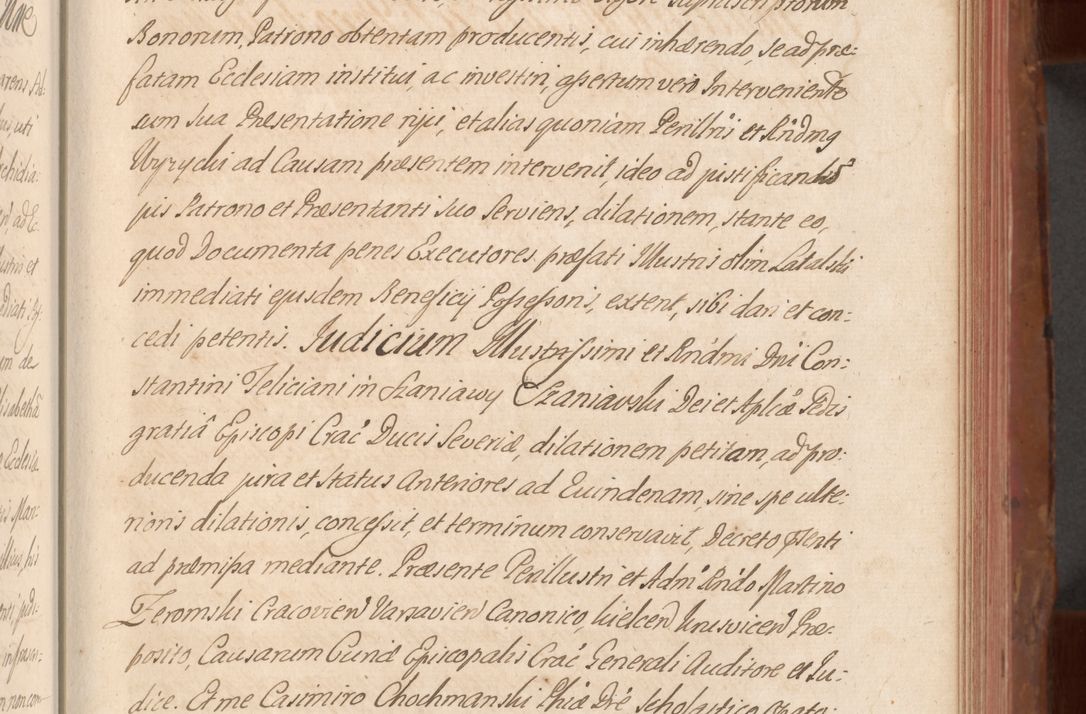 Bonorum, Patrono obtentam producentis, cui inhærendo, se ad præ-
fatam Ecclesiam institui, ac investiri, assertum vero Interveniente
cum sua Præsentatione rejici, et alias quoniam Perillris et Rndmg
Wyzycki ad Causam præsentem intervenit, ideo ad justificand
jus Patrono et Præsentanti suo serviens, dilationem, stante eo,
quod Documenta penes Executores præfati Illustris olim Latalski
immediati ejusdem Beneficij Possessoris, extent, sibi dari et con:
cedi petentis. Judicium Illustrissimi et Rndmi Dni Con:
stantini Feliciani in Szaniawy Szaniavski Dei et Aplicæ Sedis
gratiâ Episcopi Crac Ducis Severiæ, dilationem petitam, ad pro:
ducenda jura et status anteriores ad Euindenam, sine spe ulte:
rioris dilationis, concessit, et terminum conservavit, Decreto psenti
ad præmissa mediante. Præsente Perillustri et Adm Rndo Martino
Zeromski Cracovien Varsavien Canonico, Kielcen Krusvicen Præ-
posito, Causarum Curiæ Episcopalis Crac Generali Auditore et Ju:
dice. Et me Casimiro Chochmanski Phiæ Dre Scholastico